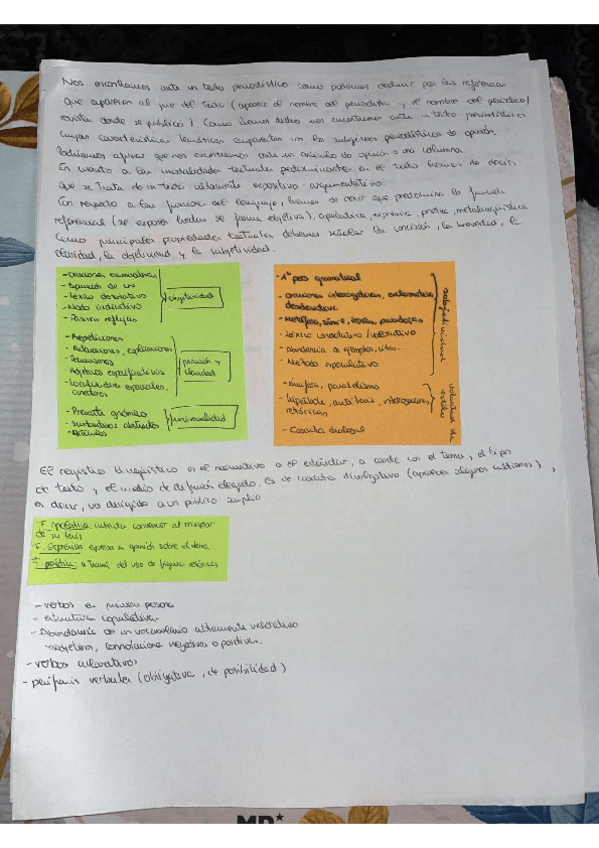 Nos encontramos ante un texto periodístico como podemos deducir por las referencias
que aparecen al pie del texto (aparece el nombre del periodista y el nombre del periódico/
revista donde se publicó). Como hemos dicho nos encontramos ante un texto periodístico
cuyas características temáticas emparentan con los subgéneros periodísticos de opinión.
Podríamos afirmar que nos encontramos ante un artículo de opinión o una columna.
En cuanto a las modalidades textuales predominantes en el texto hemos de decir
que se trata de un texto expositivo argumentativo.
En respecto a las funciones del lenguaje, hemos de decir que predomina la función
referencial (se exponen hechos de forma objetiva), apelativa, expresiva, poética, metalingüística
Como principales propiedades textuales debemos señalar la concisión, la brevedad, la
claridad, la objetividad y la subjetividad.
- Oraciones enunciativas
- Léxico denotativo
- Modo indicativo
- Pasiva refleja
objetividad
- Repeticiones
- Aclaraciones, explicaciones
- Tecnicismos
- Adjetivos especificativos
- Localizadores espaciales,
conectores
precisión y
claridad
- Presente gnómico
- sustantivos abstractos
universalidad
- 1ª pers gramatical
- oraciones interrogativas, exclamativas
desiderativas
- Metáforas, ironías, paradojas
- Léxico connotativo
- Abundancia de ejemplos, citas...
- Método especulativo
subjetividad
- Anáfora, paralelismo
- hipérbole, antítesis, interrogaciones
retóricas
voluntad de
estilo
El registro lingüístico es el normativo o el estándar, acorde con el tema, el tipo
de texto y el medio de difusión elegido. Es de carácter divulgativo (aparecen algunos cultismos),
es decir, va dirigido a un público amplio
F. apelativa: intenta convencer al receptor
de su tesis
F. Expresiva: expresa su opinión sobre el tema
F. poética: a través del uso de figuras retóricas
- verbos en primera persona
- estructuras copulativas
- Abundancia de un vocabulario altamente valorativo
adjetivos, connotaciones negativas o positivas.
- verbos valorativos
- perífrasis verbales (obligativa, de posibilidad)